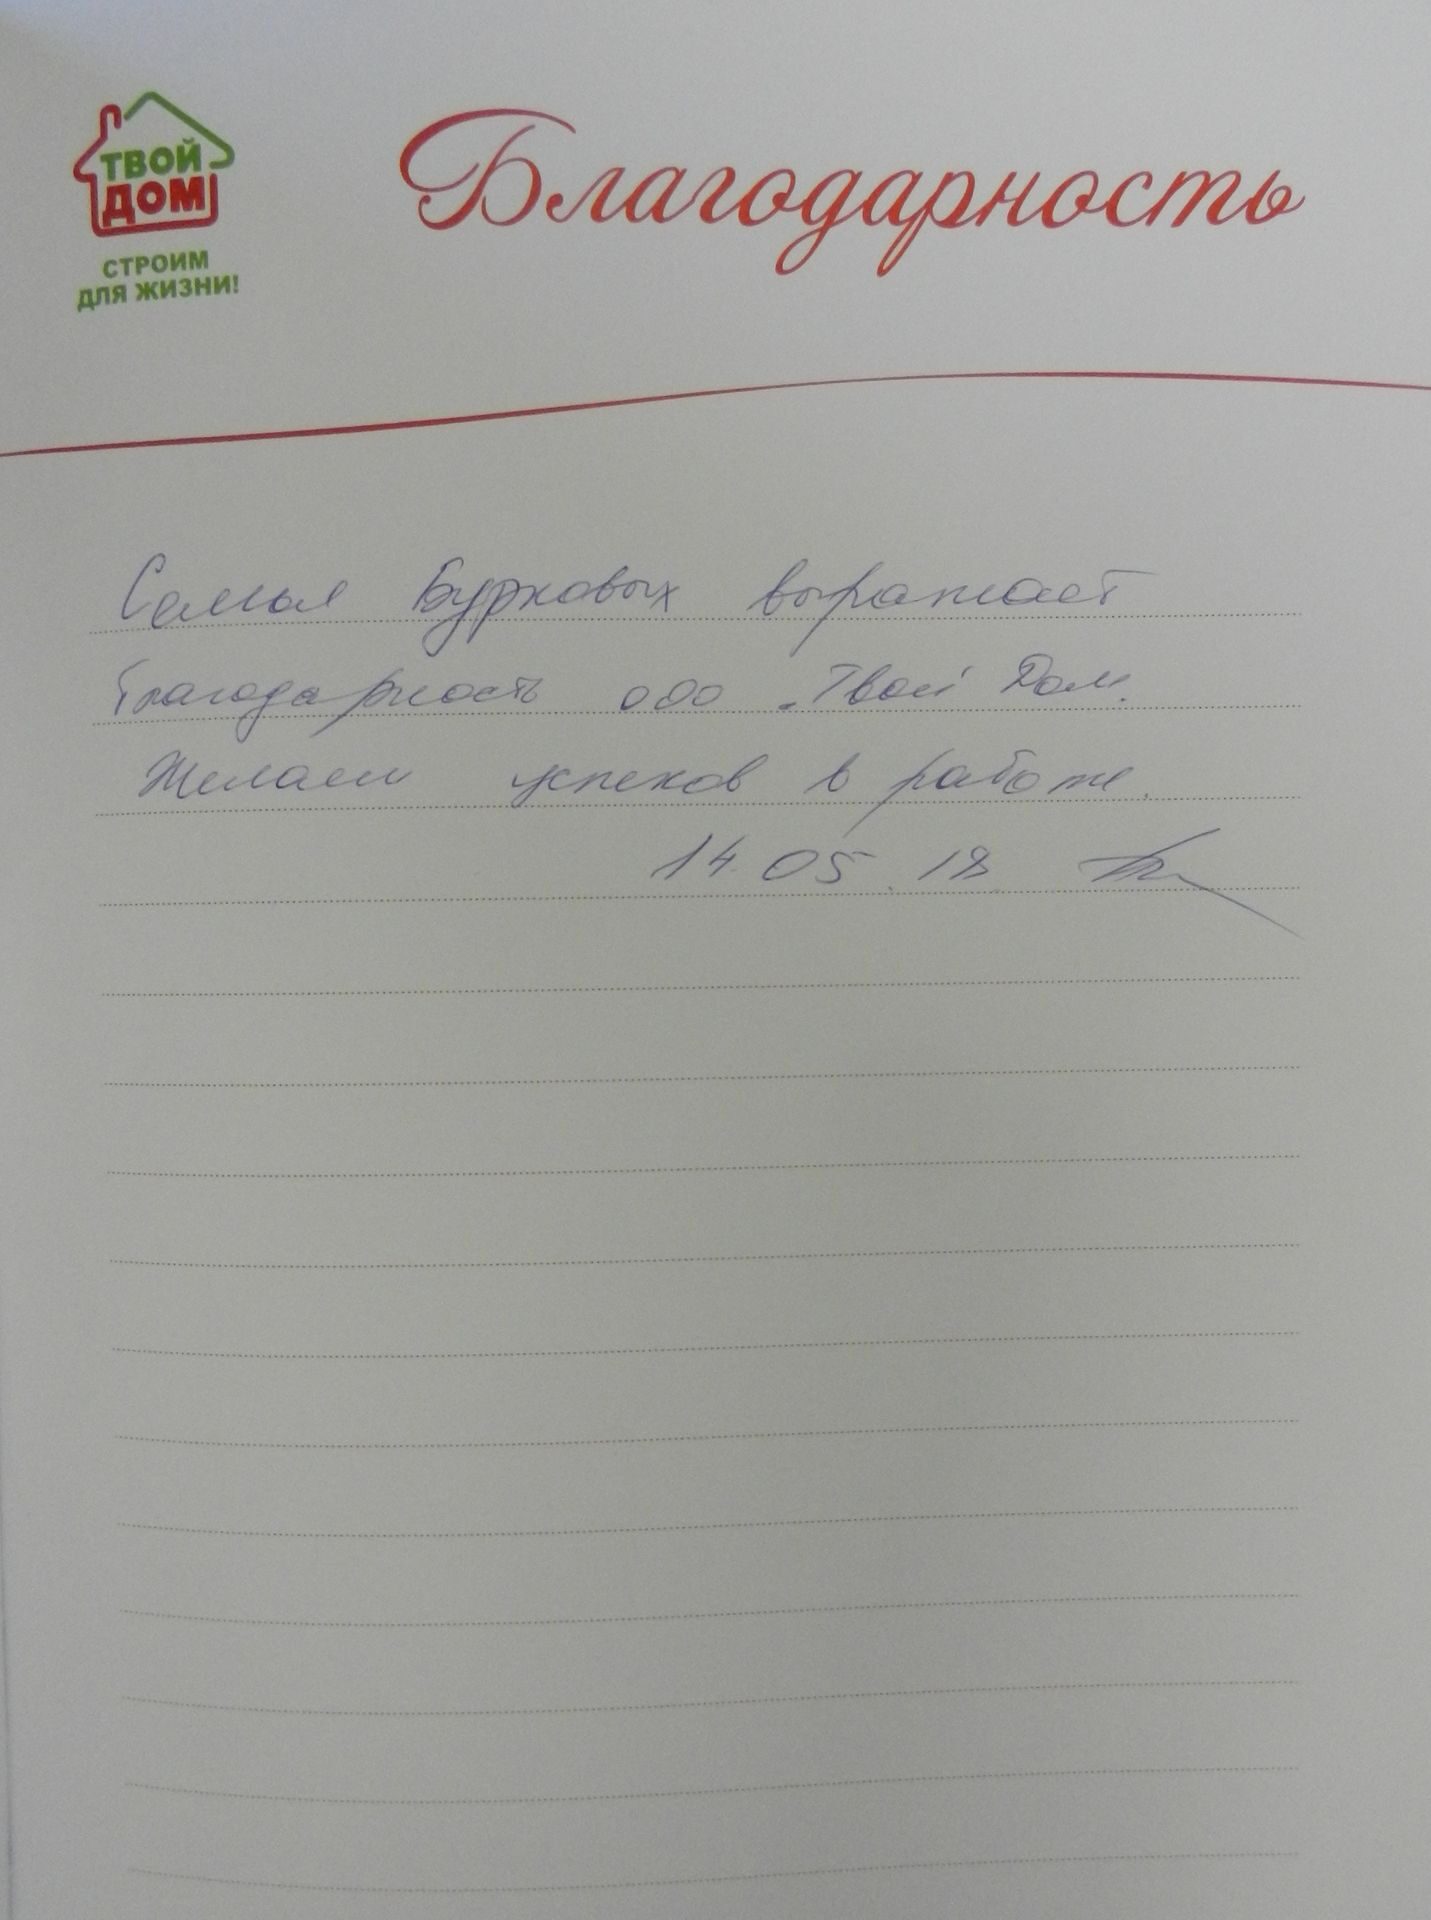 ТВОЙ
ДОМ
СТРОИМ
ДЛЯ ЖИЗНИ!
Благодарность
Семья Бурковых выражает
благодарность ООО "Твой Дом".
Желаем успехов в работе.
14.05.18